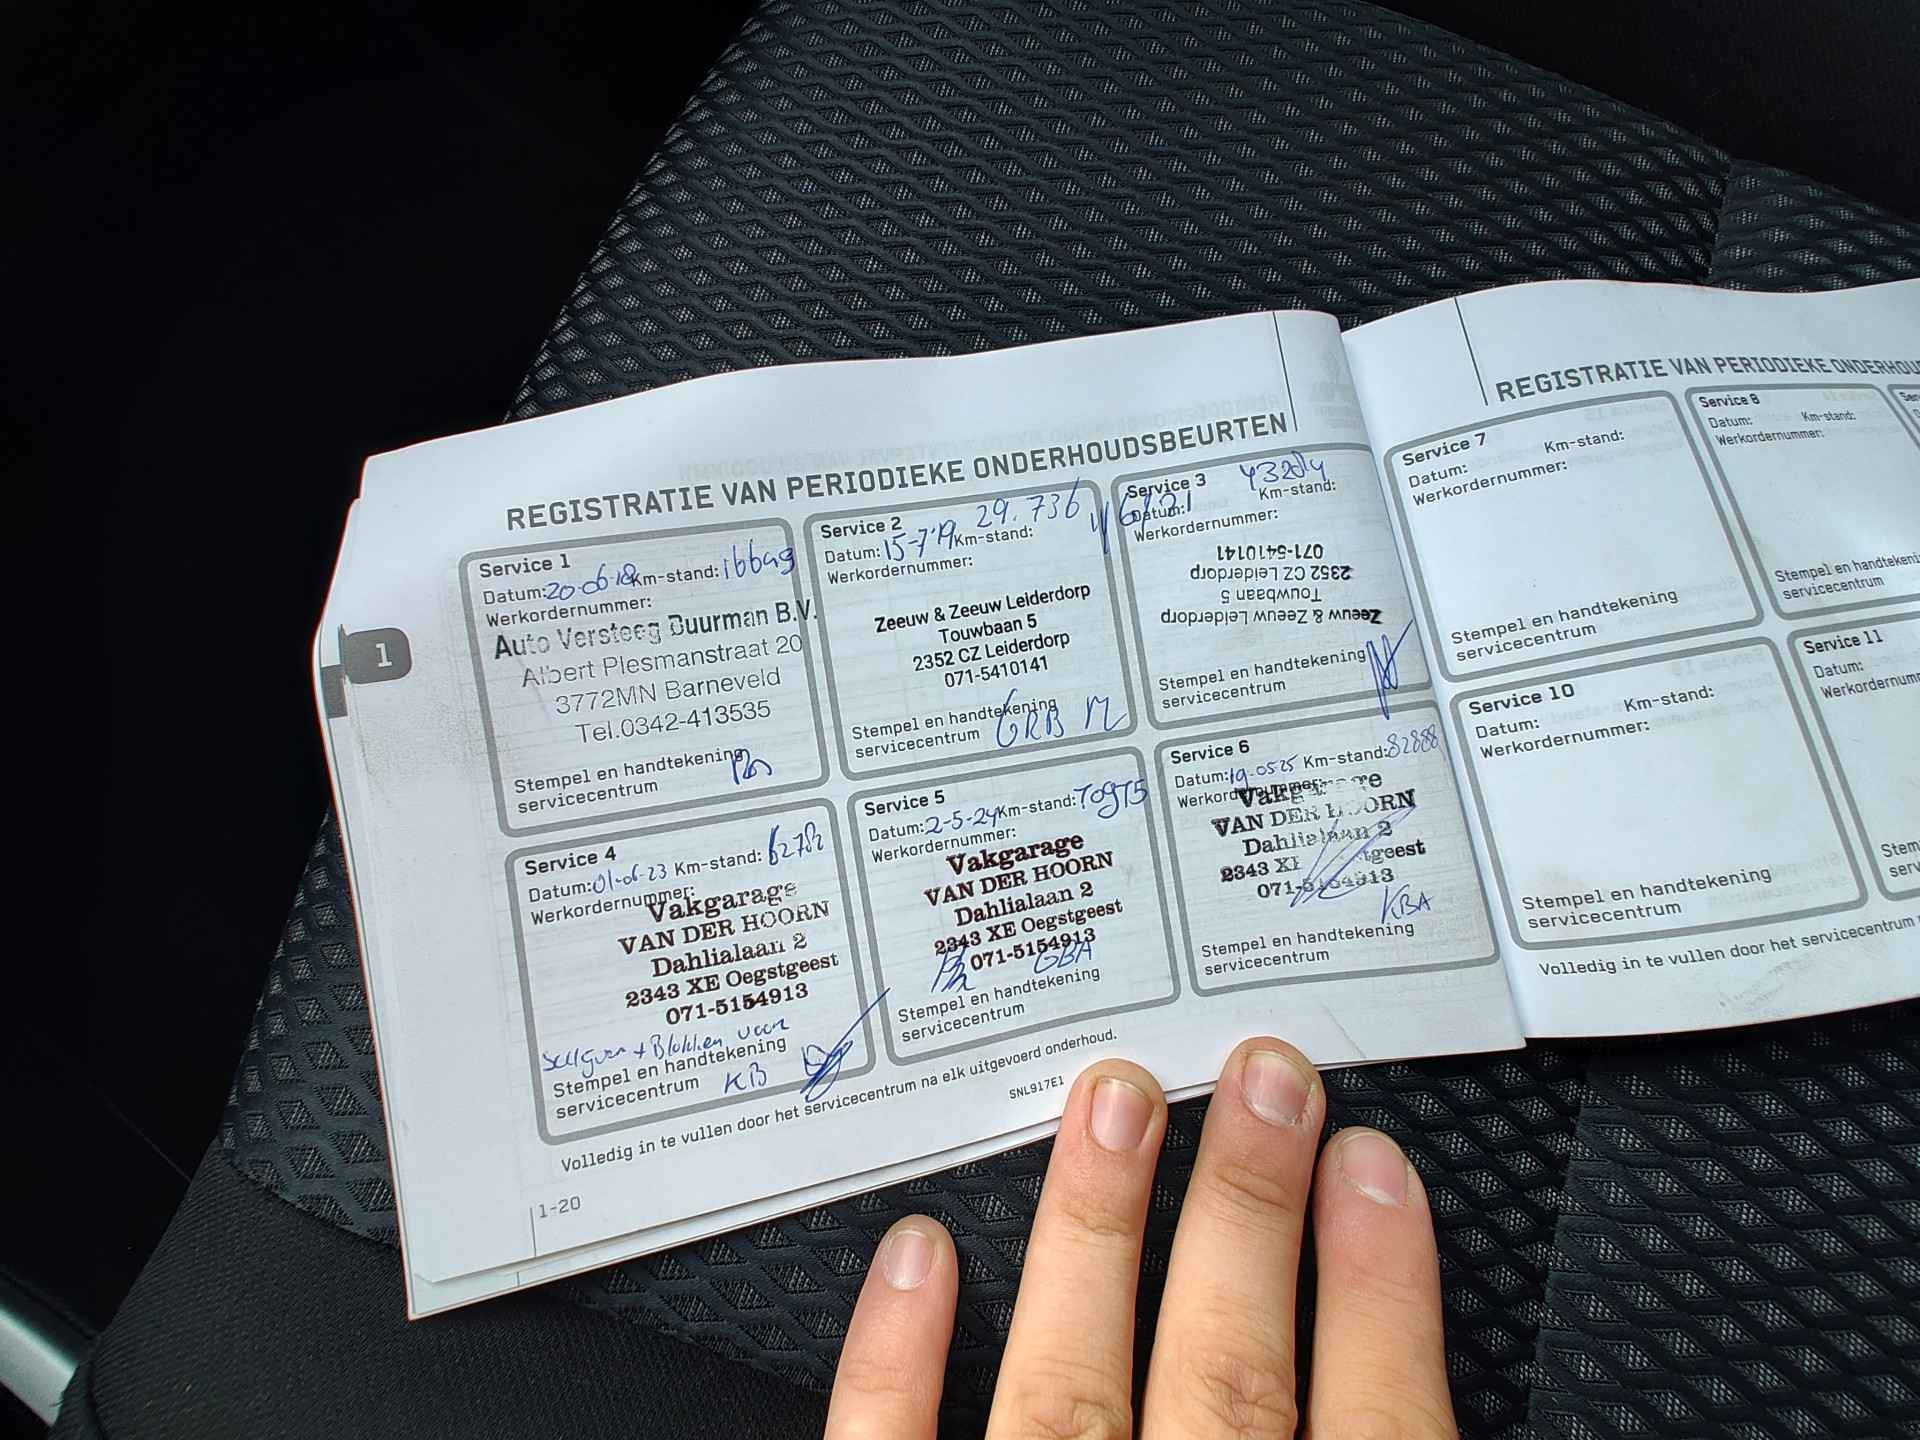 REGISTRATIE VAN PERIODIEKE ONDERHOUDSBEURTEN
Service 1
Datum: 20-06-18 Km-stand: 16649
Werkordernummer:
Auto Versteeg Buurman B.V.
Albert Plesmanstraat 20
3772MN Barneveld
Tel.0342-413535
Stempel en handtekening
servicecentrum
Service 2
Datum: 15-7-'19 Km-stand: 29.736
Werkordernummer:
Zeeuw & Zeeuw Leiderdorp
Touwbaan 5
2352 CZ Leiderdorp
071-5410141
Stempel en handtekening
servicecentrum
GRB
Service 3
Datum: Km-stand:
Werkordernummer:
Zeeuw & Zeeuw Leiderdorp
Touwbaan 5
2352 CZ Leiderdorp
071-5410141
Stempel en handtekening
servicecentrum
1
Service 4
Datum: 01-06-23 Km-stand: 62782
Werkordernummer:
Vakgarage
VAN DER HOORN
Dahlialaan 2
2343 XE Oegstgeest
071-5154913
+ Blokken voor
Stempel en handtekening
servicecentrum KB
Service 5
Datum: 2-5-24 Km-stand:
Werkordernummer:
Vakgarage
VAN DER HOORN
Dahlialaan 2
2343 XE Oegstgeest
071-5154913
GBA
Stempel en handtekening
servicecentrum
Service 6
Datum: 19-05-25 Km-stand: 82888
Werkordernummer:
Vakgarage
VAN DER HOORN
Dahlialaan 2
2343 XE Oegstgeest
071-5154913
KBA
Stempel en handtekening
servicecentrum
Volledig in te vullen door het servicecentrum na elk uitgevoerd onderhoud.
SNL917E1
1-20
REGISTRATIE VAN PERIODIEKE ONDERHOU
Service 7
Datum: Km-stand:
Werkordernummer:
Stempel en handtekening
servicecentrum
Service 8
Datum: Km-stand:
Werkordernummer:
Stempel en handtekeni
servicecentrum
Service 10
Datum: Km-stand:
Werkordernummer:
Stempel en handtekening
servicecentrum
Service 11
Datum:
Werkordernumm
Stem
serv
Volledig in te vullen door het servicecentrum